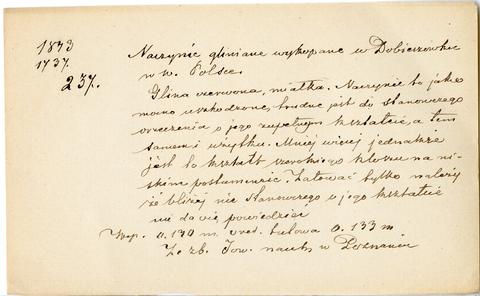 1873
1737.
237.
Naczynie gliniane wykopane w Dobieszewku
w w. Polsce.
Glina czerwona, miałka. Naczynie to jako
mocno uszkodzone, trudne jest do stanowczego
orzeczenia o jego zupełnym kształcie, a tem
samem i użytku. Mniej więcej jednakże
jest to kształt szerokiego kloszu na nis-
kim postumencie. Żałować tylko należy
że bliżej nic stanowczego o jego kształcie
nie da się powiedzieć
Wys. 0.190 m. śred. tułowa 0.133 m
Ze zb. Tow. nauk. w Poznaniu